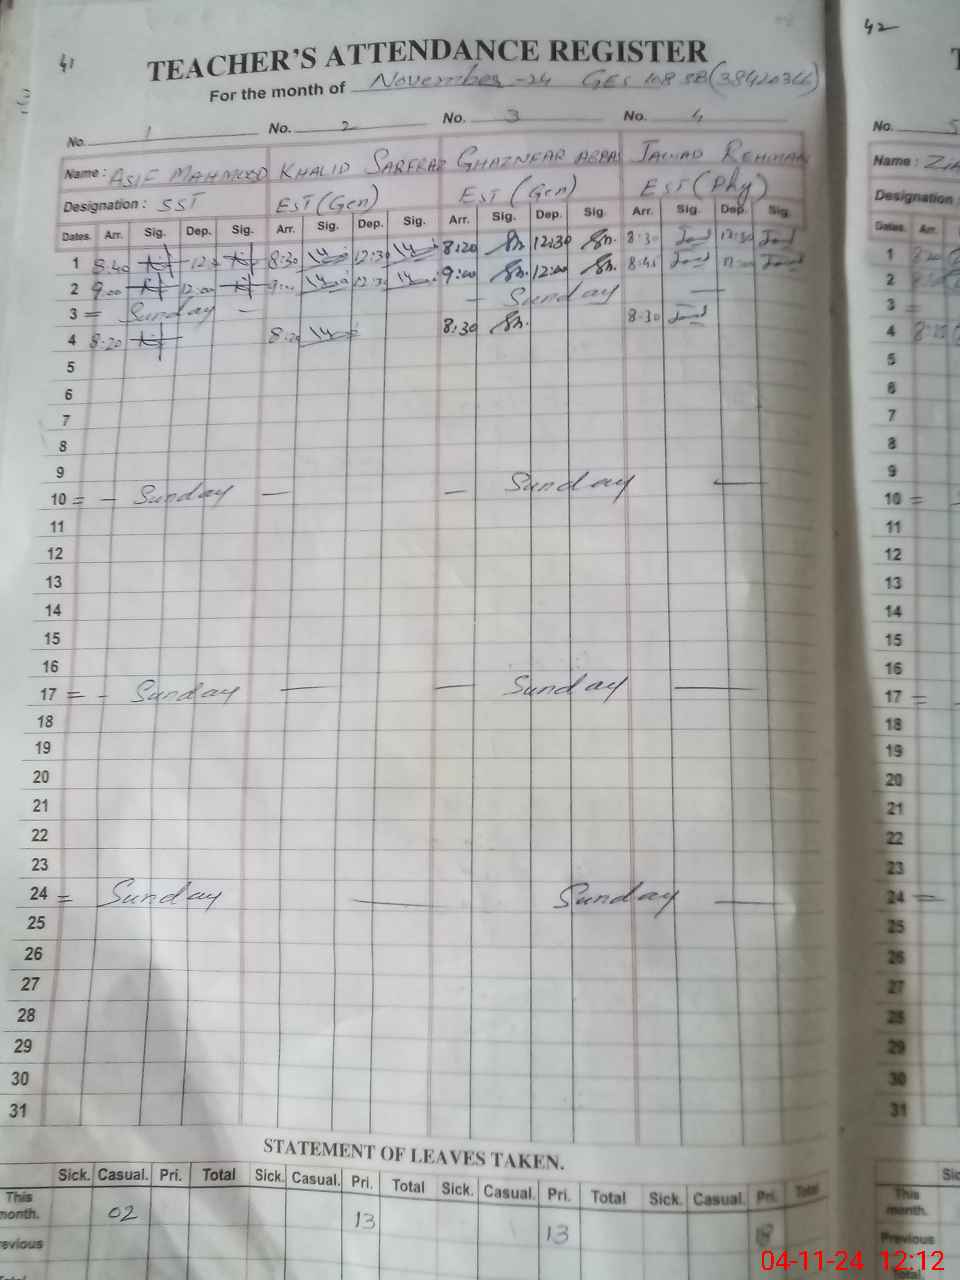 41
42
TEACHER'S ATTENDANCE REGISTER
For the month of November -24 GES 108 SB (38420366)
No. 1 No. 2 No. 3 No. 4
Name : ASIF MAHMOOD KHALID SARFRAZ GHAZNFAR ABBA JAWAD REHMAN
Designation : SST EST (Gen) EST (Gen) EST (Phy)
Dates. Arr. Sig. Dep. Sig. Arr. Sig. Dep. Sig. Arr. Sig. Dep. Sig. Arr. Sig. Dep. Sig.
1 8:40 8:30 12:30 8:20 12:30 8:30 12:30
2 9:00 12:00 9:00 9:00 12:00 8:45
3 = Sunday - - Sunday —
4 8:20 8:20 8:30 8:30
5
6
7
8
9
10 = - Sunday — — Sunday —
11
12
13
14
15
16
17 = - Sunday — — Sunday —
18
19
20
21
22
23
24 = Sunday — Sunday —
25
26
27
28
29
30
31
STATEMENT OF LEAVES TAKEN.
Sick. Casual. Pri. Total Sick. Casual. Pri. Total Sick. Casual. Pri. Total Sick. Casual. Pri. Total
This month. 02 13 13 18
Previous
Total
No. 5
Name :
Designation
Dates. Arr.
1
2
3 =
4
5
6
7
8
9
10 =
11
12
13
14
15
16
17 =
18
19
20
21
22
23
24 =
25
26
27
28
29
30
31
This month.
Previous
Total
04-11-24 12:12